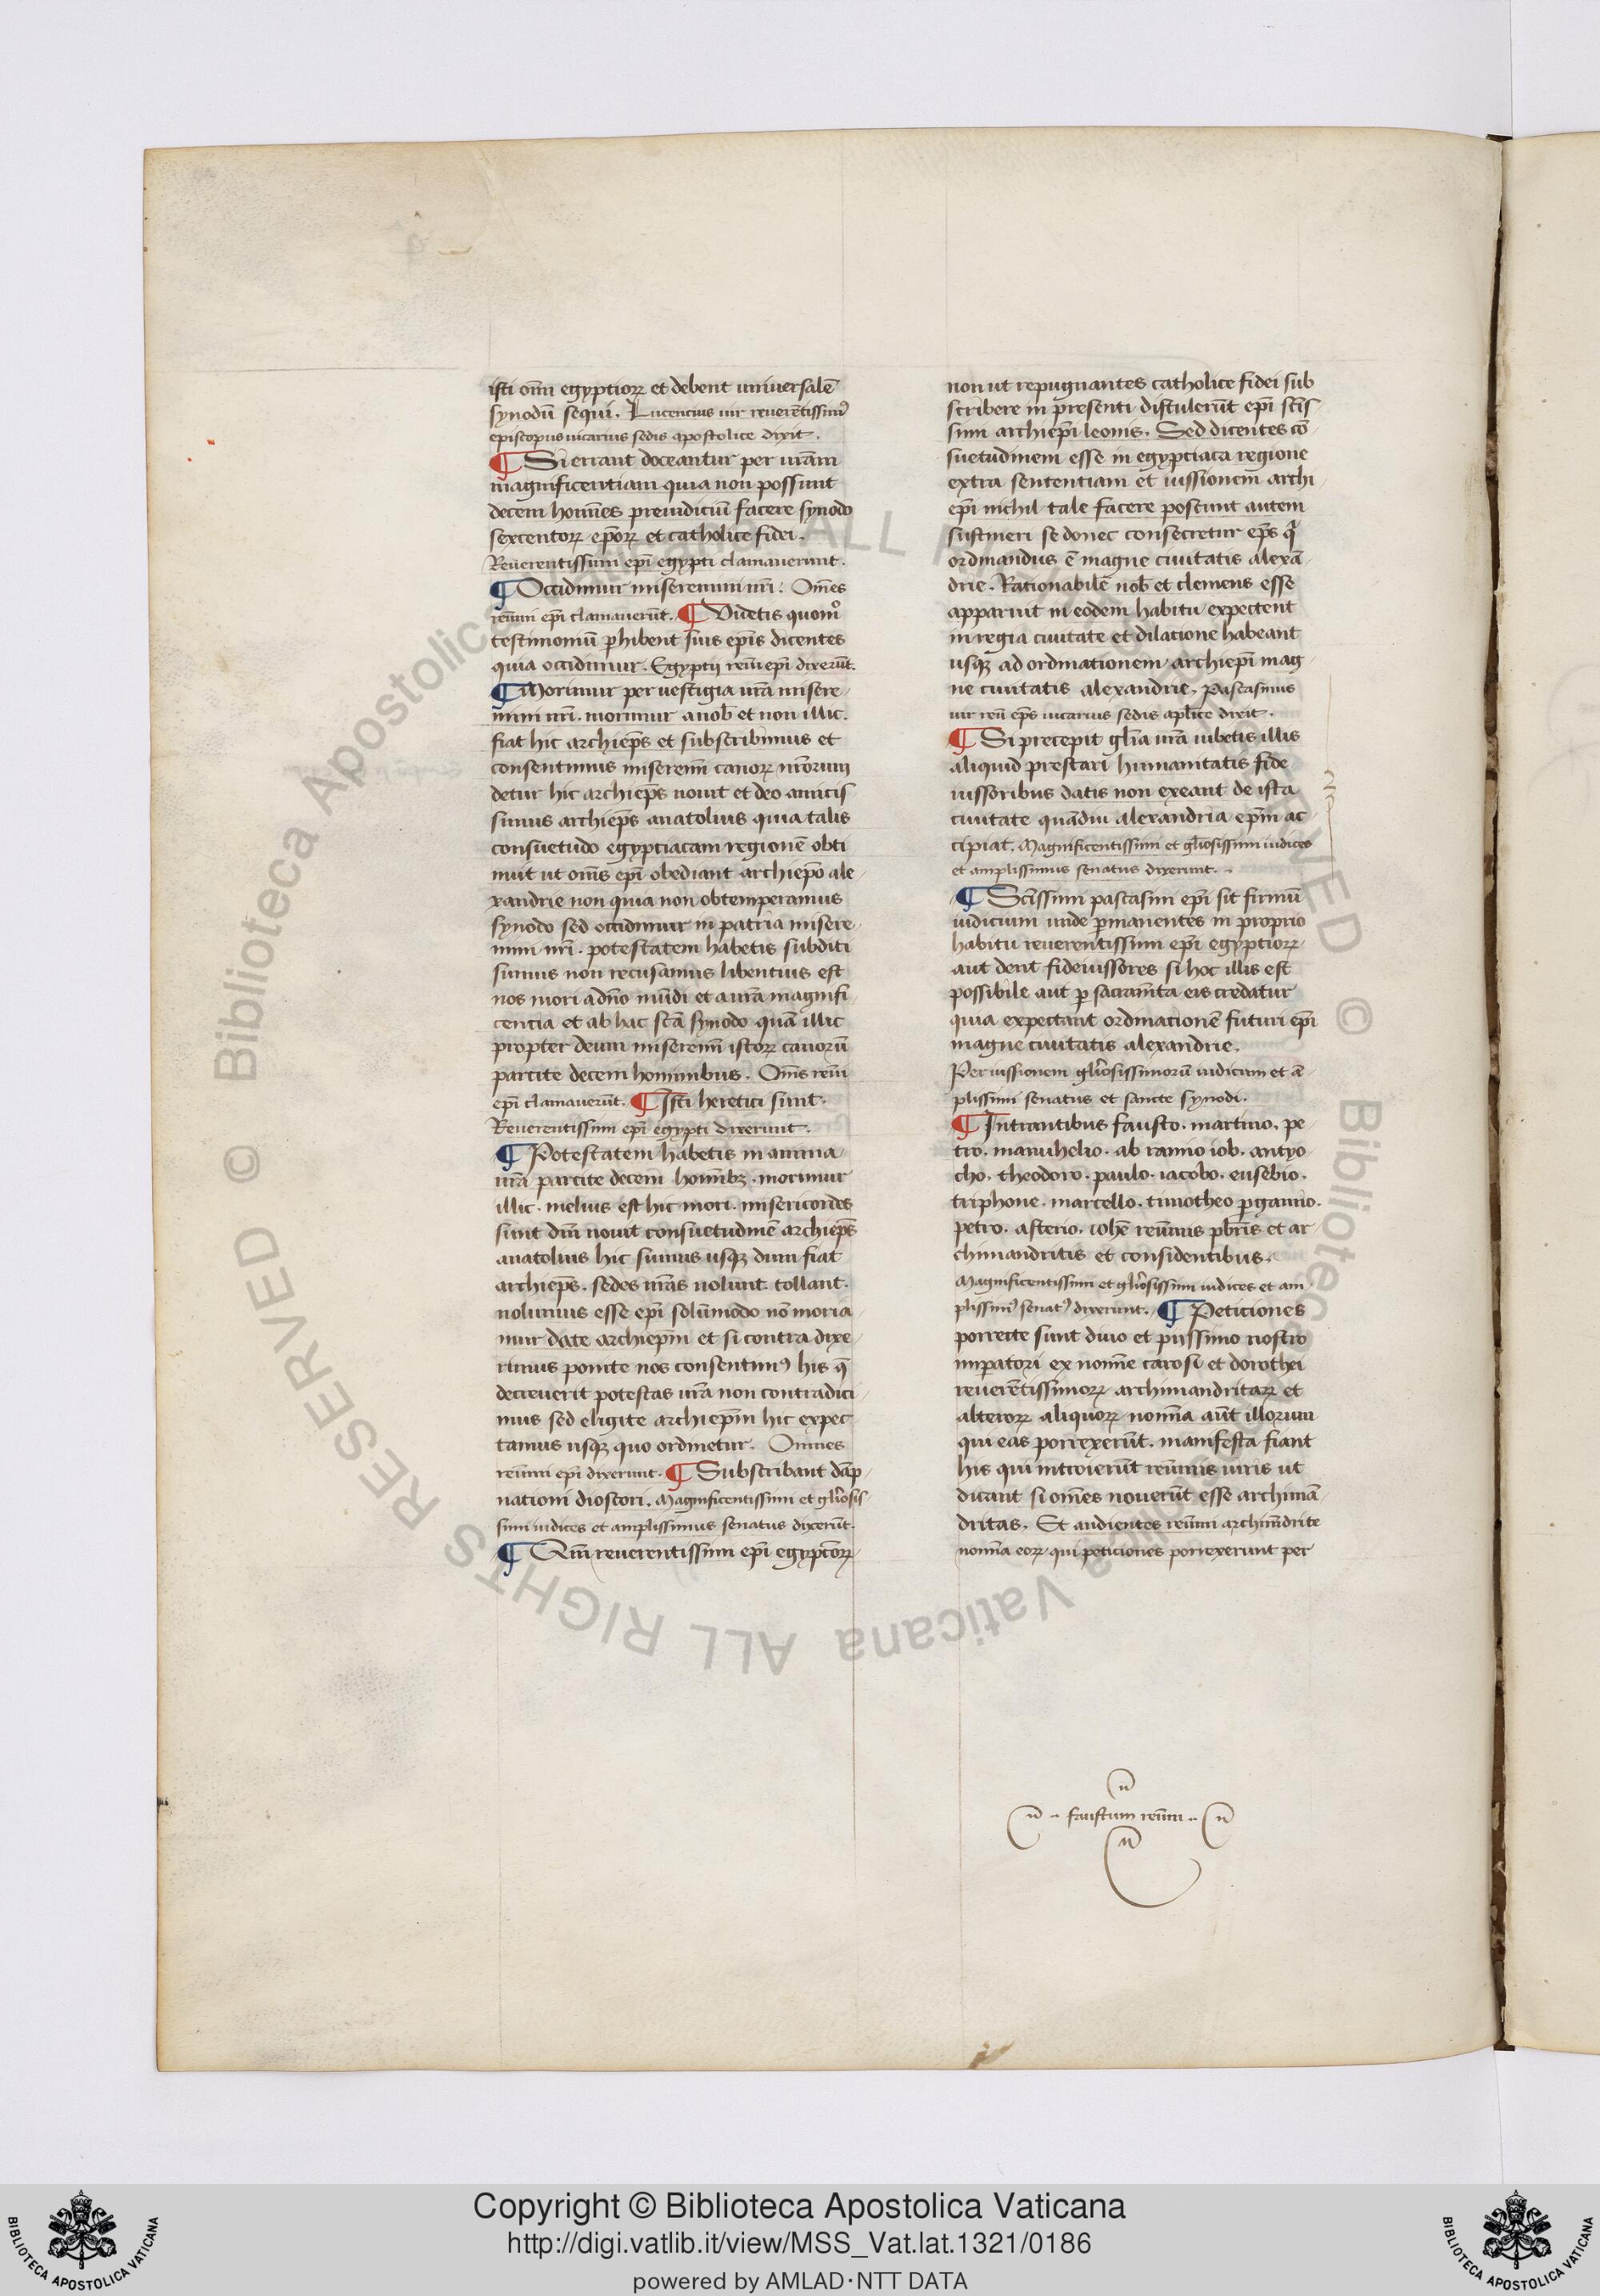 isti om̄i egyptiorꝝ et debent uniuersalē
synodū sequi. Lucencius uir reuerētissimꝰ
episcopus uicarius sedis apostolice dixit.
¶ Si errant doceantur per ur̄am
magnificentiam quia non possunt
decem homīes preiudiciū facere synodo
sexcentorꝝ ep̄orꝝ et catholice fidei.
Reuerentissimi ep̄i egypti clamauerunt.
¶ Occidimur miseremini nr̄i. Om̄es
reūmi ep̄i clamauerūt. ¶ Videtis quomͦ
testimoniū ꝑhibent suis ep̄is dicentes
quia occidimur. Egyptij reūi ep̄i dixerūt.
¶ Morimur per uestigia ur̄a misere
mini nr̄i. morimur a uob̄ et non illic.
fiat hic archiep̄s et subscribimus et
consentimus miserem̄i canorꝝ nr̄orum
detur hic archiep̄s nouit et deo amicis
simus archiep̄s anatolius quia talis
consuetudo egyptiacam regionē obti
nuit ut om̄s ep̄i obediant archiep̄o ale
xandrie non quia non obtemperamus
synodo sed occidimur in patria misere
mini nr̄i. potestatem habetis subditi
sumus non recusamus libentius est
nos mori a dn̄o mūdi et a ur̄a magnifi
centia et ab hac sc̄a synodo quā illic
propter deum miserem̄i istorꝝ canorū
parcite decem hominibus. Om̄s reūi
ep̄i clamauerūt. ¶ Isti heretici sunt.
Reuerentissimi ep̄i egypti dixerunt.
¶ Potestatem habetis in anima
ur̄a parcite decem homībꝫ. morimur
illic. melius est hic mori. misericordes
sint dn̄i nouit consuetudinē archiep̄s
anatolius hic sumus usqꝫ dum fiat
archiep̄s. sedes nr̄as uolunt. tollant.
nolumus esse ep̄i solūmodo nō moria
mur date archiep̄m et si contra dixe
rimus punite nos consentimꝰ his q̄
decreuerit potestas ur̄a non contradici
mus sed eligite archiep̄m hic expec
tamus usqꝫ quo ordinetur. Omnes
reūmi ep̄i dixerunt. ¶ Subscribant dāp
nationi dioscori. Magnificentissimi et gl̄iosis
simi iudices et amplissimus senatus dixerūt.
¶ Qm̄ reuerentissimi ep̄i egyptiorꝝ
non ut repugnantes catholice fidei sub
scribere in presenti distulerūt ep̄i sc̄is
simi archiep̄i leonis. Sed dicentes cō
suetudinem esse in egyptiaca regione
extra sententiam et iussionem archi
ep̄i nichil tale facere poscunt autem
sustineri se donec consecretur ep̄s qͥ
ordinandus ē magne ciuitatis alexā
drie. Rationabilē nob̄ et clemens esse
apparuit in eodem habitu expectent
in regia ciuitate et dilatione habeant
usqꝫ ad ordinationem archiep̄i mag
ne ciuitatis alexandrie. Pascasinus
uir reū ep̄s uicarius sedis apl̄ice dixit.
¶ Si precepit gl̄ia ur̄a iubetis illis
aliquid prestari humanitatis fide
iussoribus datis non exeant de ista
ciuitate quādiu alexandria ep̄m ac
cipiat. Magnificentissimi et gl̄iosissimi iudices
et amplissimus senatus dixerunt.
¶ Sc̄issimi pascasini ep̄i sit firmū
iudicium unde ꝑmanentes in proprio
habitu reuerentissimi ep̄i egyptiorꝝ
aut dent fideiussores si hoc illis est
possibile aut ꝑ sacram̄ta eis credatur
quia expectant ordinationē futuri ep̄i
magne ciuitatis alexandrie.
Per iussionem gl̄iosissimorū iudicum et ā
plissimi senatus et sancte synodi.
¶ Intrantibus fausto. martino. pe
tro. manuhelio. abramio iob. antyo
cho. theodoro. paulo. iacobo. eusebio.
triphone. marcello. timotheo ꝑgamio.
petro. asterio. ioh̄e reūmis p̄bris et ar
chimandritis et considentibus.
Magnificentissimi et gl̄iosissimi iudices et am
plissimꝰ senatꝰ dixerunt. ¶ Peticiones
porrecte sunt diuo et piissimo nostro
imꝑatori ex nomīe carosi et dorothei
reuerētissimorꝝ archimandritarꝝ et
alterorꝝ aliquorꝝ nomīa aūt illorum
qui eas porrexerūt. manifesta fiant
his qui introierūt reūmis uiris ut
dicant si om̄es nouerūt esse archimā
dritas. Et audientes reūmi archim̄drite
nomīa eorꝝ qui peticiones porrexerunt per
faustum reūm
Copyright © Biblioteca Apostolica Vaticana
http://digi.vatlib.it/view/MSS_Vat.lat.1321/0186
powered by AMLAD·NTT DATA
BIBLIOTECA APOSTOLICA VATICANA
BIBLIOTECA APOSTOLICA VATICANA
© Biblioteca Apostolica Vaticana ALL RIGHTS RESERVED